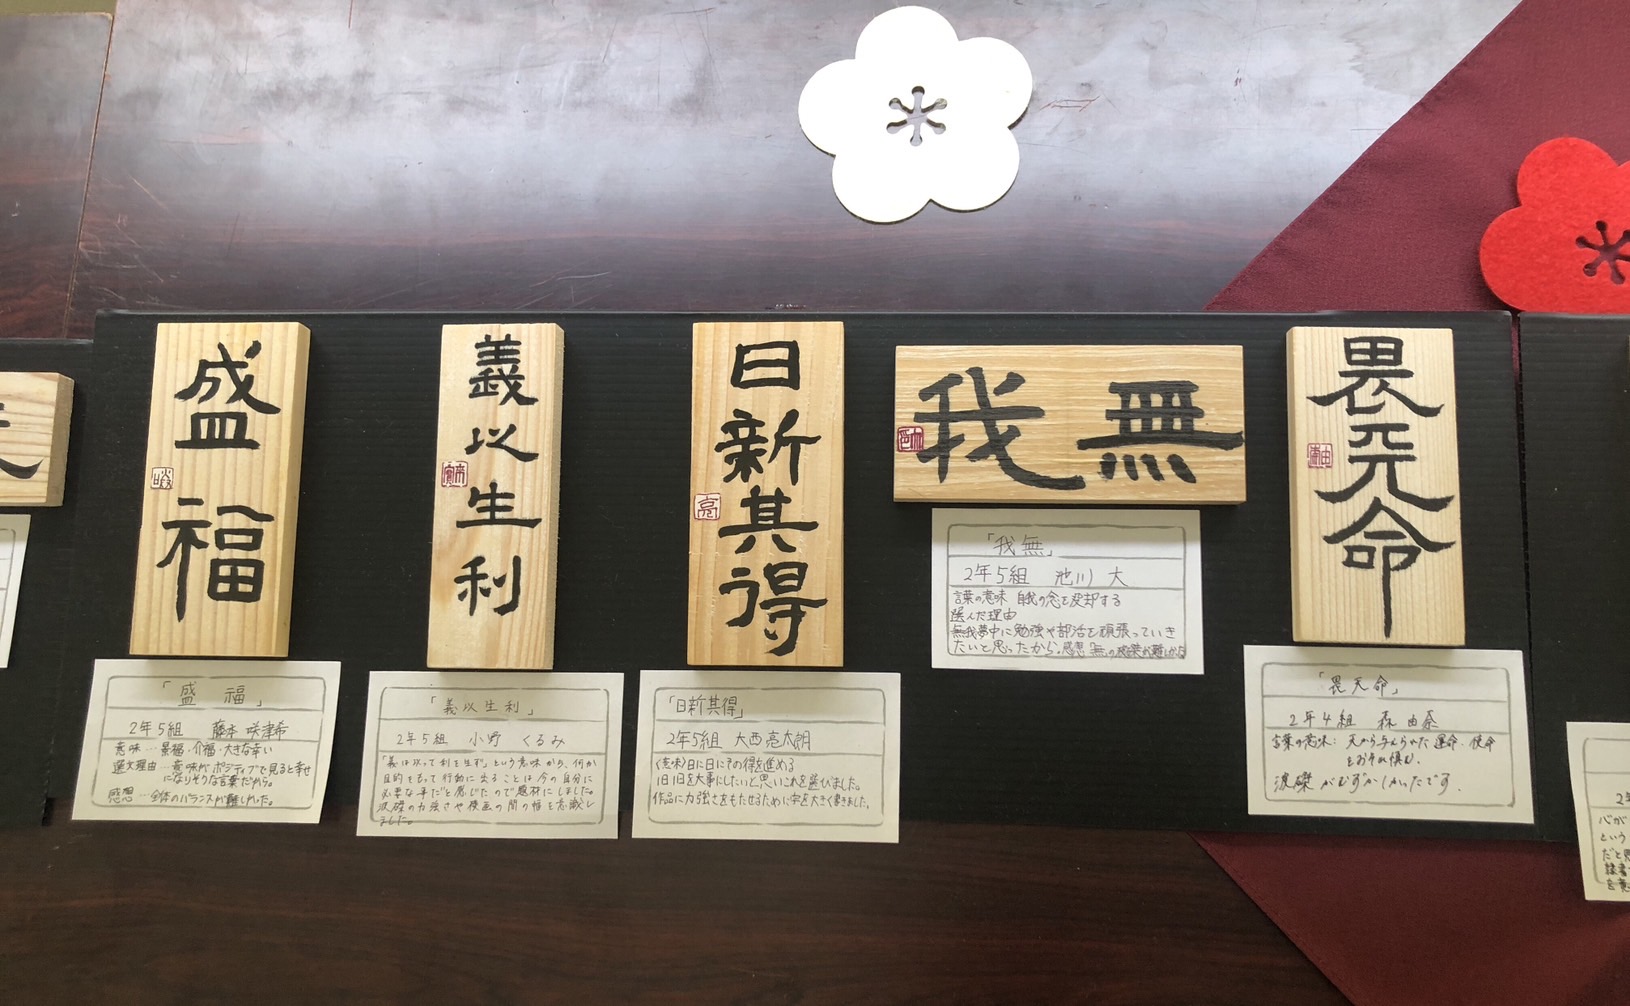 盛福
義以生利
日新其得
我無
畏天命
「盛 福」
2年5組 藤本 咲津希
意味…景福・介福・大きな幸い
選文理由…意味がポジティブで見ると幸せ
になりそうな言葉だから。
感想…全体のバランスが難しかった。
「義以生利」
2年5組 小野 くるみ
「義は以って利を生ず」という意味から、何か
目的をもって行動に出ることは今の自分に
必要な事だと感じたので題材にしました。
波磔の力強さや横画の間の幅を意識し
ました。
「日新其得」
2年5組 大西 亮太朗
(意味)日に日にその得を進める
1日1日を大事にしたいと思いこれを選びました。
作品に力強さをもたせるために字を大きく書きました。
「我無」
2年5組 池川 大
言葉の意味 自我の念を没却する
選んだ理由
無我夢中に勉強や部活を頑張っていき
たいと思ったから。感想 無の
「畏天命」
2年4組 森 由奈
言葉の意味：天から与えられた運命・使命
をおそれ慎む。
波磔がむずかしかったです。
心が
という